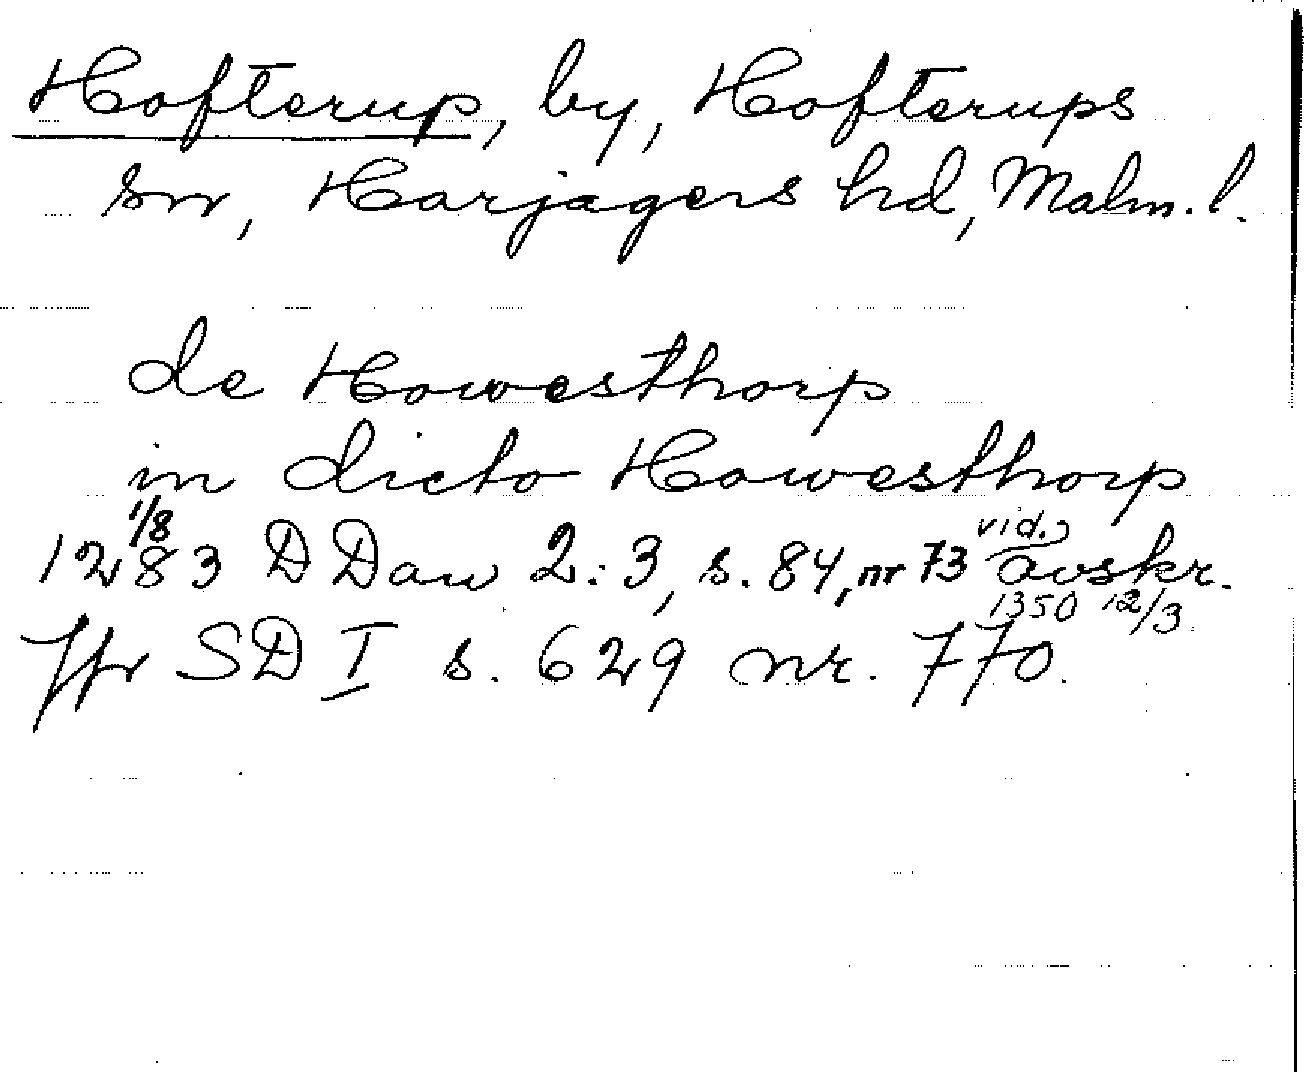 Hofterup, by, Hofterups
sn, Harjagers hd, Malm. l.
de Howesthorp
in dicto Howesthorp
1/8
1283 DDan 2:3, s. 84, nr 73 vid. avskr.
1350 12/3
Jfr SD I s. 629 nr. 770.